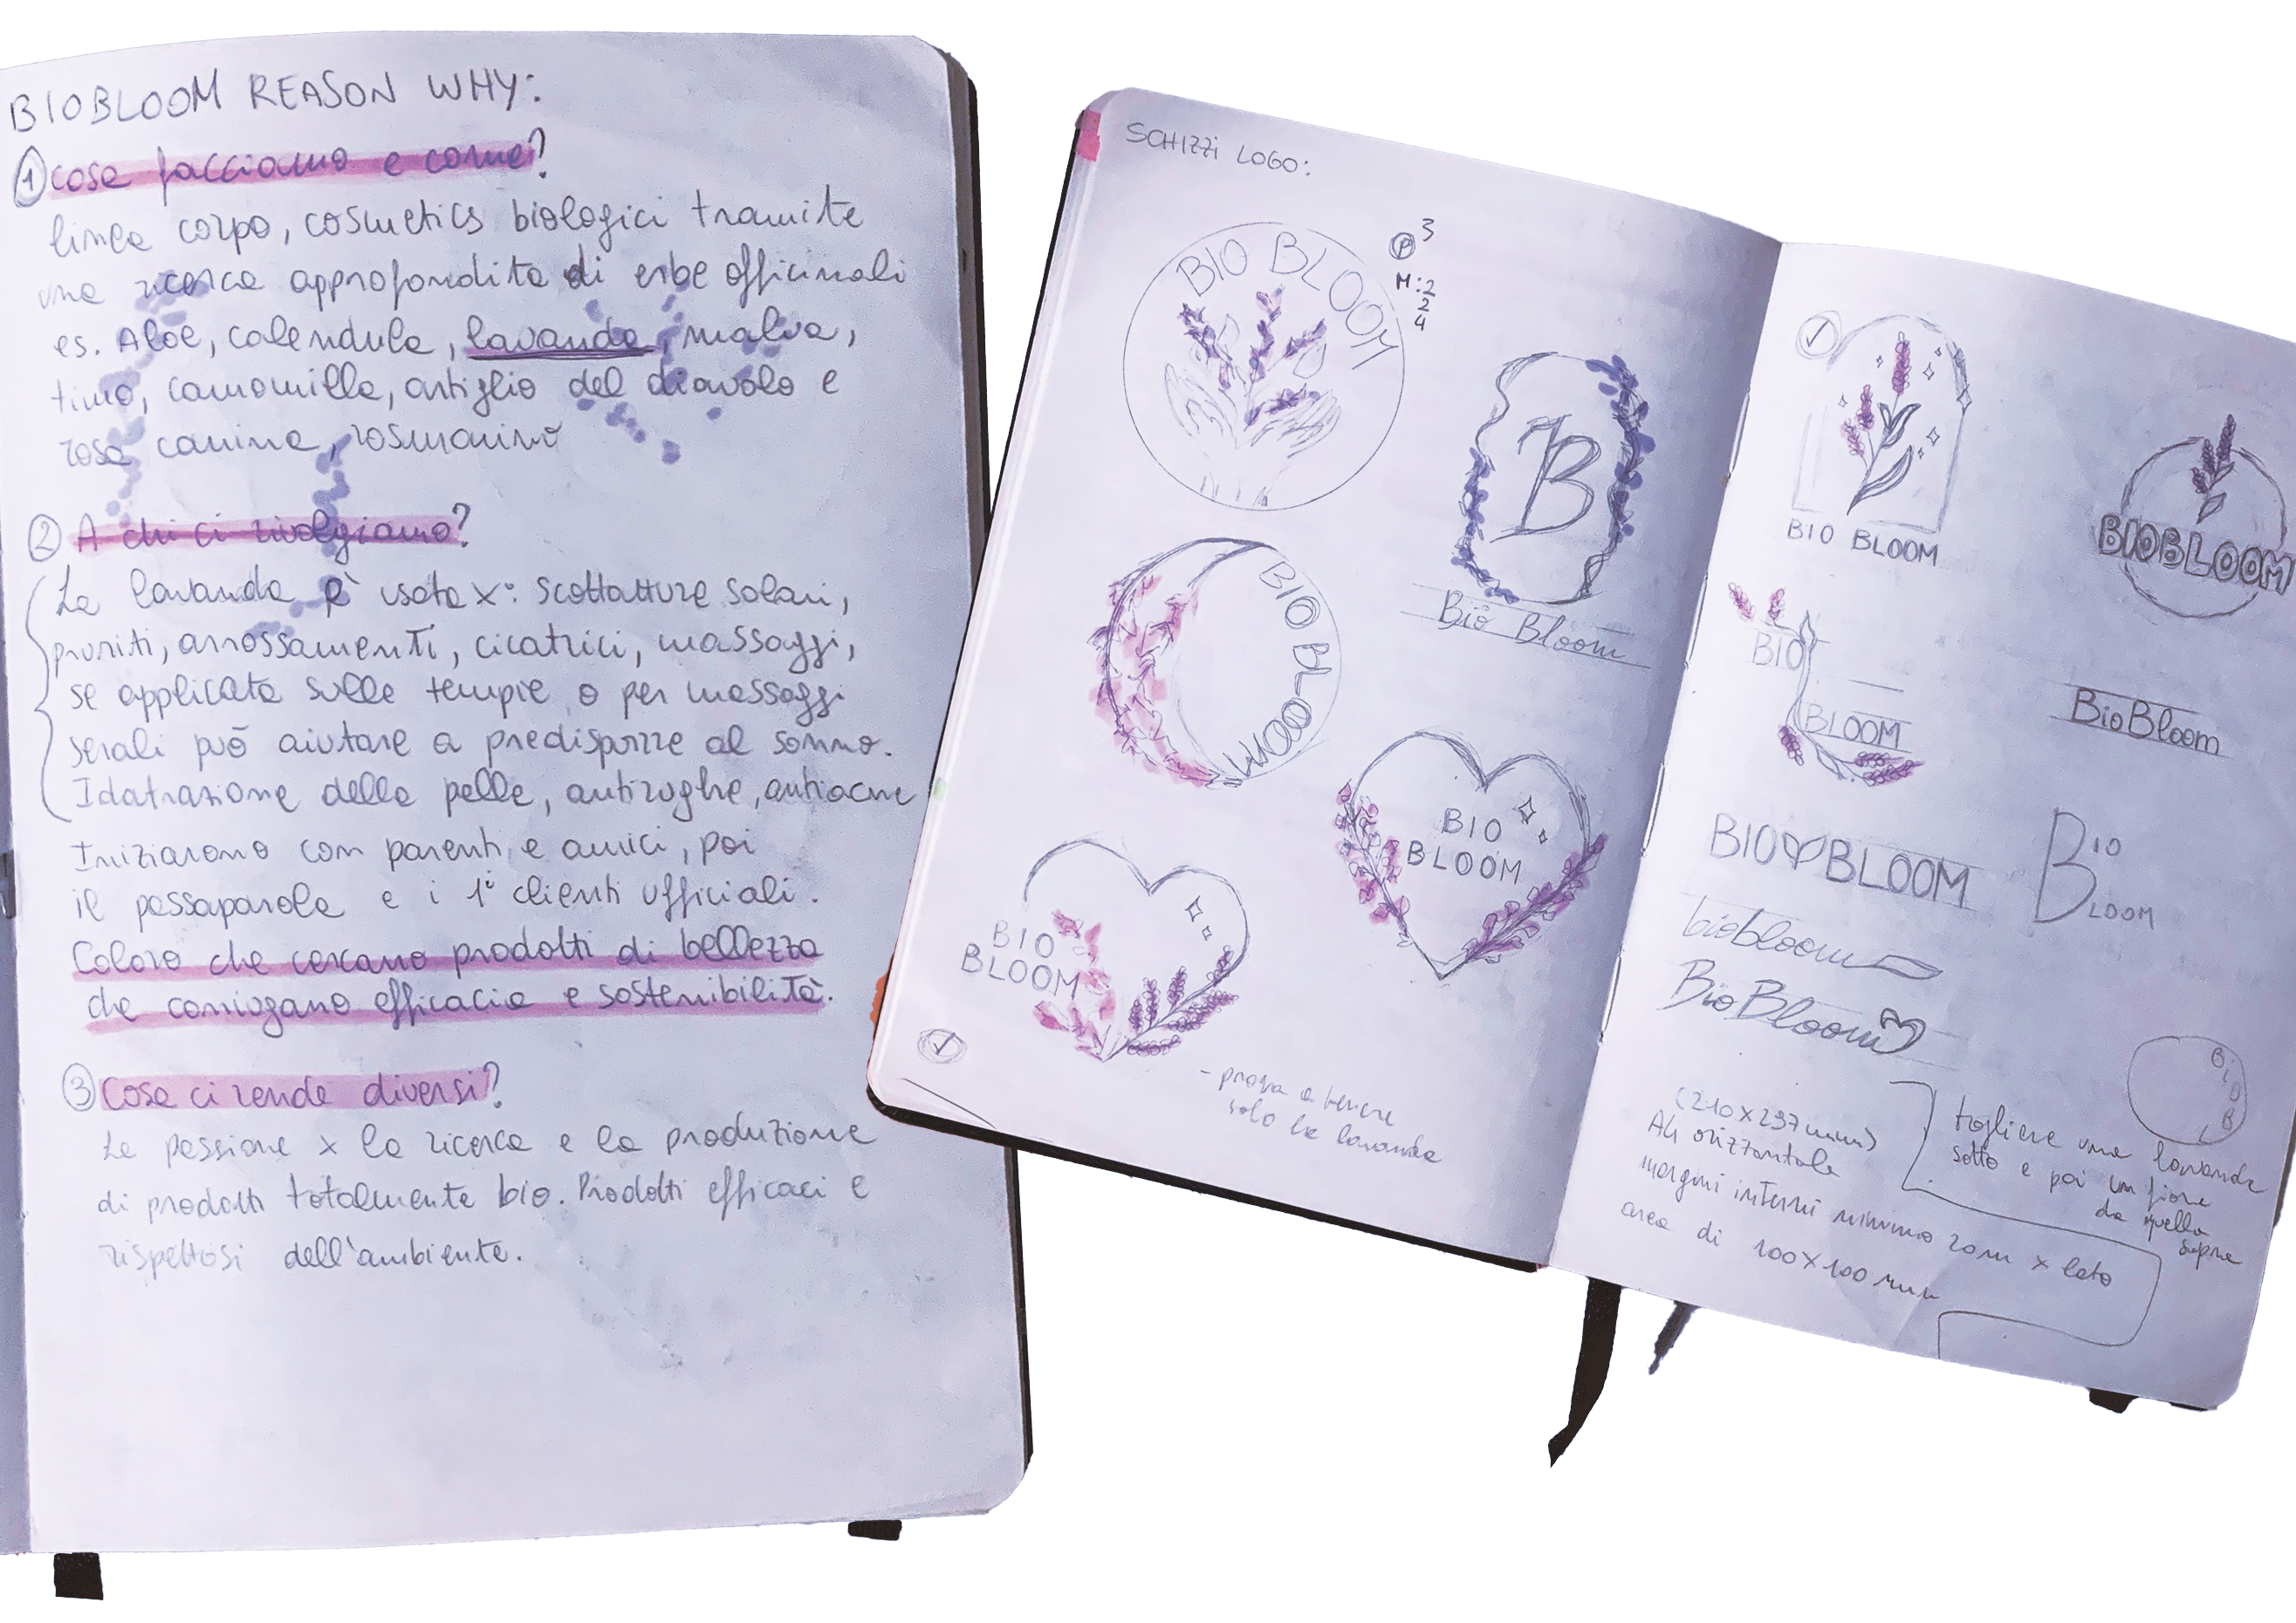 BIOBLOOM REASON WHY:
① cosa facciamo e come?
linea corpo, cosmetics biologici tramite
una ricerca approfondita di erbe officinali
es. Aloe, calendula, lavanda, malva,
timo, camomilla, artiglio del diavolo e
rosa canina, rosmarino
② A chi ci rivolgiamo?
La lavanda è usata x: scottature solari,
pruriti, arrossamenti, cicatrici, massaggi,
se applicata sulle tempie o per massaggi
serali può aiutare a predisporre al sonno.
Idatrazione della pelle, antirughe, antiacne
Iniziarono con parenti e amici, poi
il passaparola e i 1° clienti ufficiali.
Coloro che cercano prodotti di bellezza
che coniugano efficacia e sostenibilità.
③ Cosa ci rende diversi?
La passione x la ricerca e la produzione
di prodotti totalmente bio. Prodotti efficaci e
rispettosi dell'ambiente.
SCHIZZI LOGO:
BIO BLOOM
P 3
M:2
2
4
B
Bio Bloom
BIO BLOOM
BIO
BLOOM
BIO
BLOOM
- prova a tenere
solo la lavanda
BIO BLOOM
BIOBLOOM
BIO
BLOOM
BioBloom
BIO BLOOM
BIO
LOOM
biobloom
BioBloom
BIOBL
(210x297mm)
A4 orizzontale
margini interni minimo 20m x lato
area di 100x100 mm
togliere una lavanda
sotto e poi un fiore
da quella
sopra